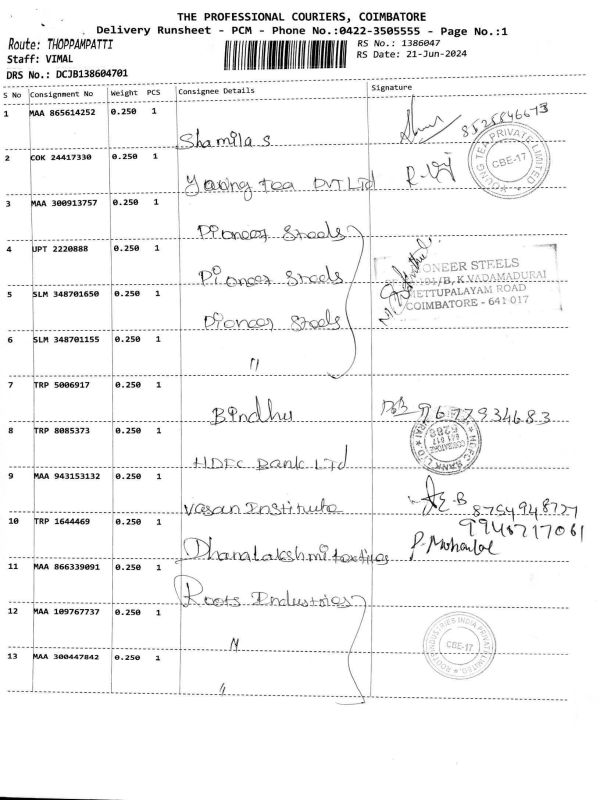 THE PROFESSIONAL COURIERS, COIMBATORE
Delivery Runsheet - PCM - Phone No.:0422-3505555 - Page No.:1
Route: THOPPAMPATTI
RS No.: 1386047
Staff: VIMAL
RS Date: 21-Jun-2024
DRS No.: DCJB138604701
S No Consignment No Weight PCS Consignee Details Signature
1 MAA 865614252 0.250 1
Shamila S
2 COK 24417330 0.250 1
Young tea PVT Ltd
YOUNG TEA PRIVATE LIMITED
CBE-17
3 MAA 300913757 0.250 1
Pioneer Steels
4 UPT 2220888 0.250 1
Pioneer Steels
PIONEER STEELS
101/B, K.VADAMADURAI
METTUPALAYAM ROAD
COIMBATORE - 641 017
5 SLM 348701650 0.250 1
Pioneer Steels
6 SLM 348701155 0.250 1
"
7 TRP 5006917 0.250 1
Bindhu 9677934683
8 TRP 8085373 0.250 1
HDFC Bank LTD
HDFC BANK LTD
COIMBATORE
641 017
5288
9 MAA 943153132 0.250 1
Vasan Institute
8754948727
10 TRP 1644469 0.250 1
9948717061
Dhanalakshmi textiles
11 MAA 866339091 0.250 1
Roots Industries
12 MAA 109767737 0.250 1
"
ROOTS INDUSTRIES INDIA PRIVATE LIMITED
CBE-17
13 MAA 300447842 0.250 1
"